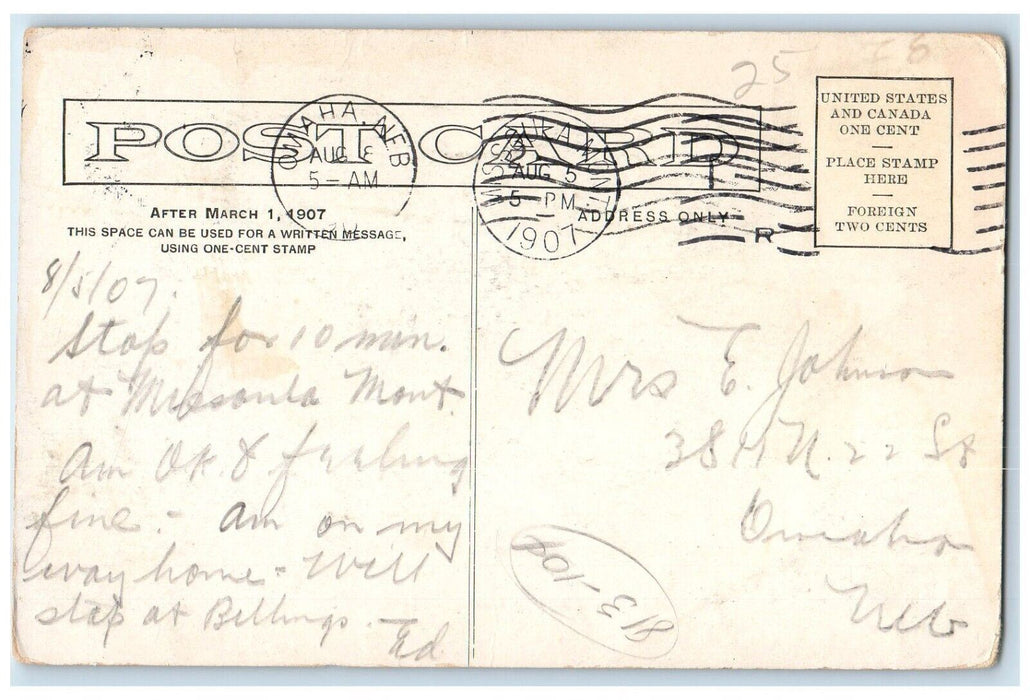 25
POST CARD
OMAHA, NEB
AUG 8
5 - AM
AUG 5
5 - PM
1907
UNITED STATES
AND CANADA
ONE CENT
PLACE STAMP
HERE
FOREIGN
TWO CENTS
AFTER MARCH 1, 1907
THIS SPACE CAN BE USED FOR A WRITTEN MESSAGE,
USING ONE-CENT STAMP
ADDRESS ONLY
R
8/5/07.
Stop for 10 min.
at Missoula Mont.
Am OK & feeling
fine. - Am on my
way home - Will
stop at Billings.
Ed
Mrs E. Johnson
N. 22 St
Omaha
Neb